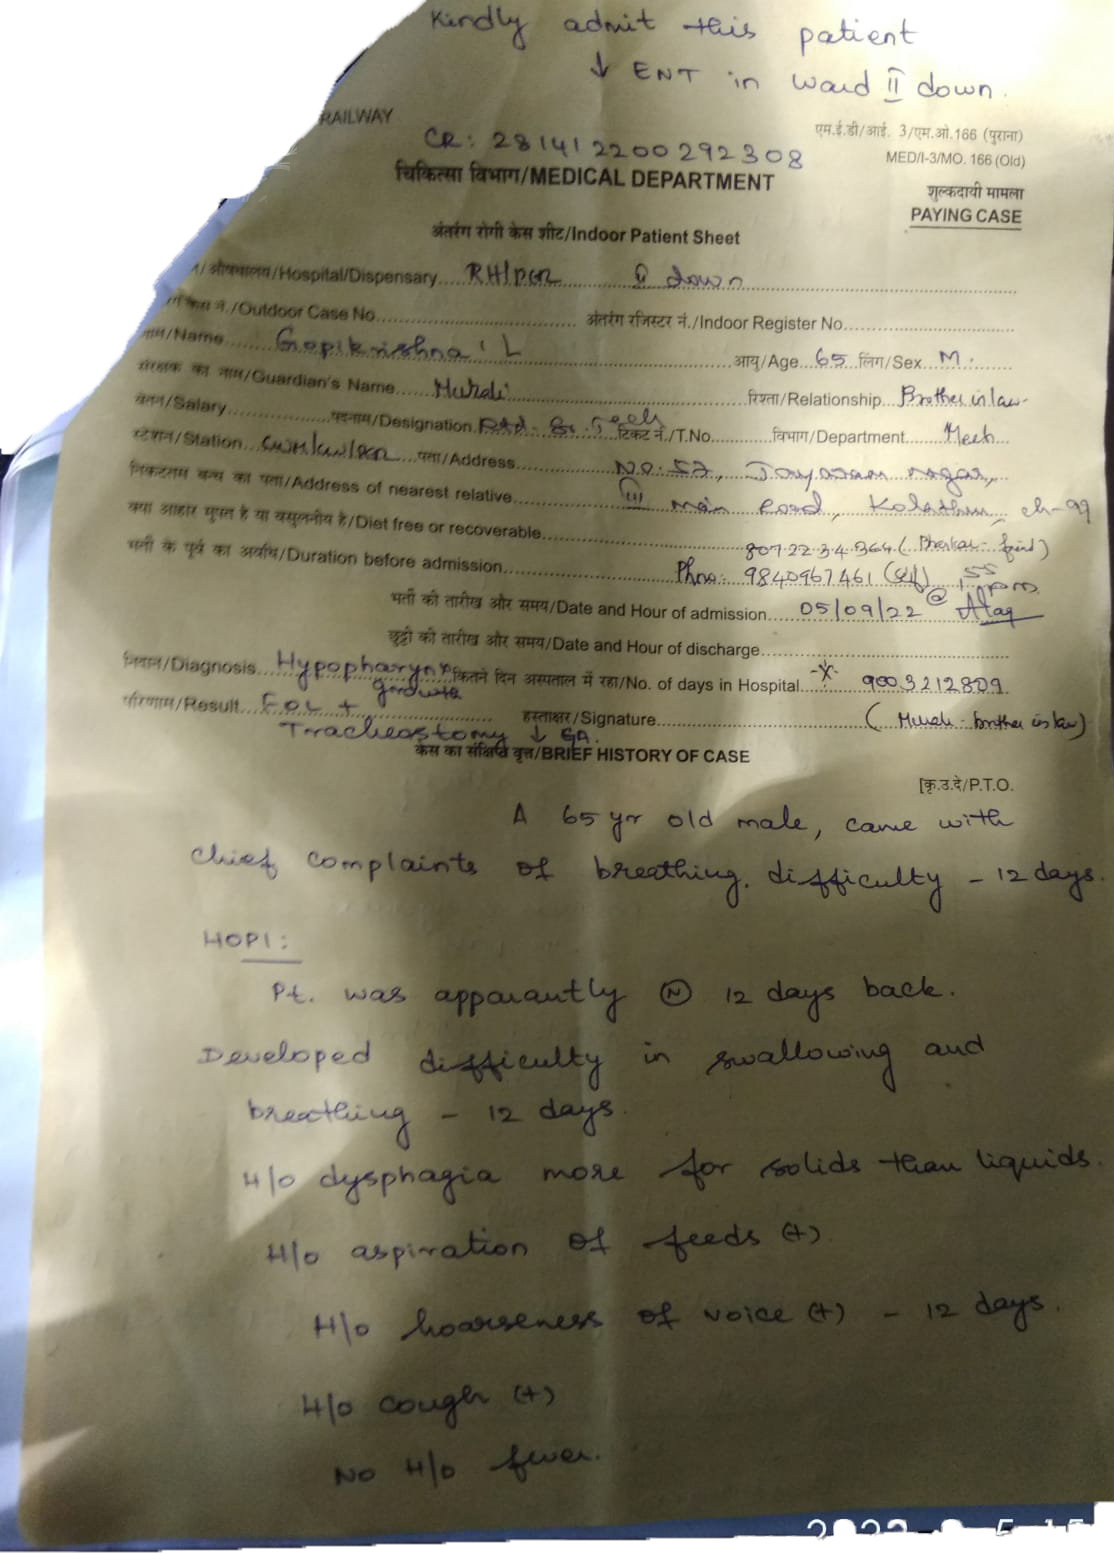 Kindly admit this patient
↓ ENT in ward II down.
RAILWAY
एम.ई.डी/आई. 3/एम.ओ.166 (पुराना)
CR: 281412200292308
MED/I-3/MO. 166 (Old)
चिकित्सा विभाग/MEDICAL DEPARTMENT
शुल्कदायी मामला
PAYING CASE
अंतरंग रोगी केस शीट/Indoor Patient Sheet
औषधालय/Hospital/Dispensary.... RH/PER down
/Outdoor Case No. अंतरंग रजिस्टर नं./Indoor Register No.
नाम/Name Gopikrishna L आयु/Age 65 लिंग/Sex M.
संरक्षक का नाम/Guardian's Name Murali रिश्ता/Relationship Brother in law.
वेतन/Salary पदनाम/Designation Rtd. Sr. Tech टिकट नं./T.No. विभाग/Department Mech
स्टेशन/Station पता/Address No: 52, Jayaram nagar,
निकटतम बन्ध का पता/Address of nearest relative III main road, Kolathur, ch-99
क्या आहार मुफ्त है या वसुलनीय है/Diet free or recoverable
भर्ती के पूर्व का अवधि/Duration before admission Ph no: 9840967461 (self)
भर्ती की तारीख और समय/Date and Hour of admission 05/09/22 @
छुट्टी की तारीख और समय/Date and Hour of discharge
निदान/Diagnosis Hypopharynx growth कितने दिन अस्पताल में रहा/No. of days in Hospital 9003212809
परिणाम/Result FOL + हस्ताक्षर/Signature (Murali - brother in law)
Tracheostomy ↓ GA.
केस का संक्षिप्त वृत्त/BRIEF HISTORY OF CASE
[कृ.उ.दे/P.T.O.
A 65 yr old male, came with
chief complaints of breathing difficulty - 12 days.
HOPI:
Pt. was apparantly (N) 12 days back.
Developed difficulty in swallowing and
breathing - 12 days.
H/o dysphagia more for solids than liquids.
H/o aspiration of feeds (+)
H/o hoarseness of voice (+) - 12 days.
H/o cough (+)
No H/o fever.